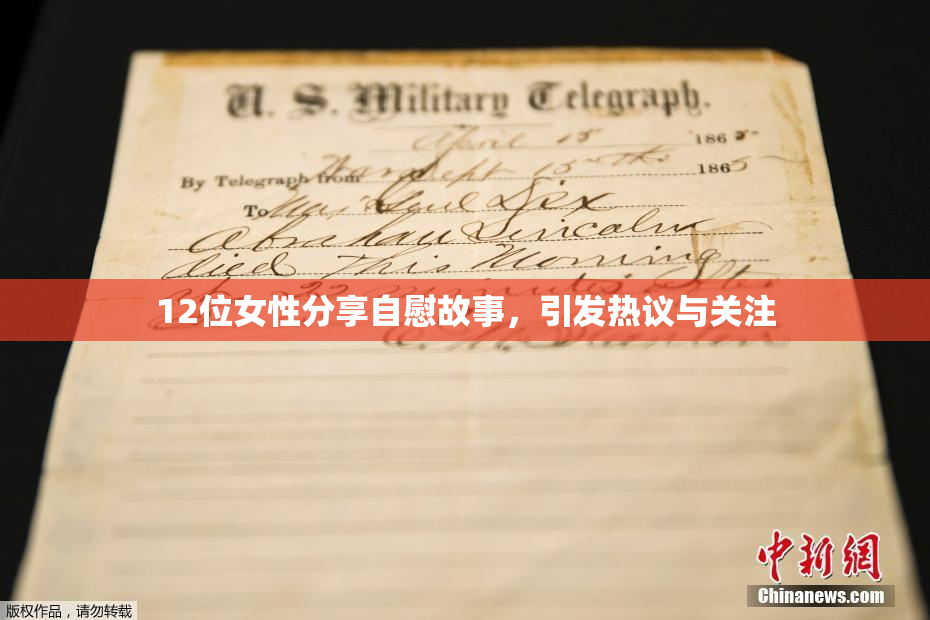 U. S. Military Telegraph.
April 15 1865
By Telegraph from War Dept 15th 1865
To Maj Genl Dix
Abraham Lincoln
died This Morning
at 22 minutes after
12位女性分享自慰故事，引发热议与关注
中新网
Chinanews.com
版权作品，请勿转载